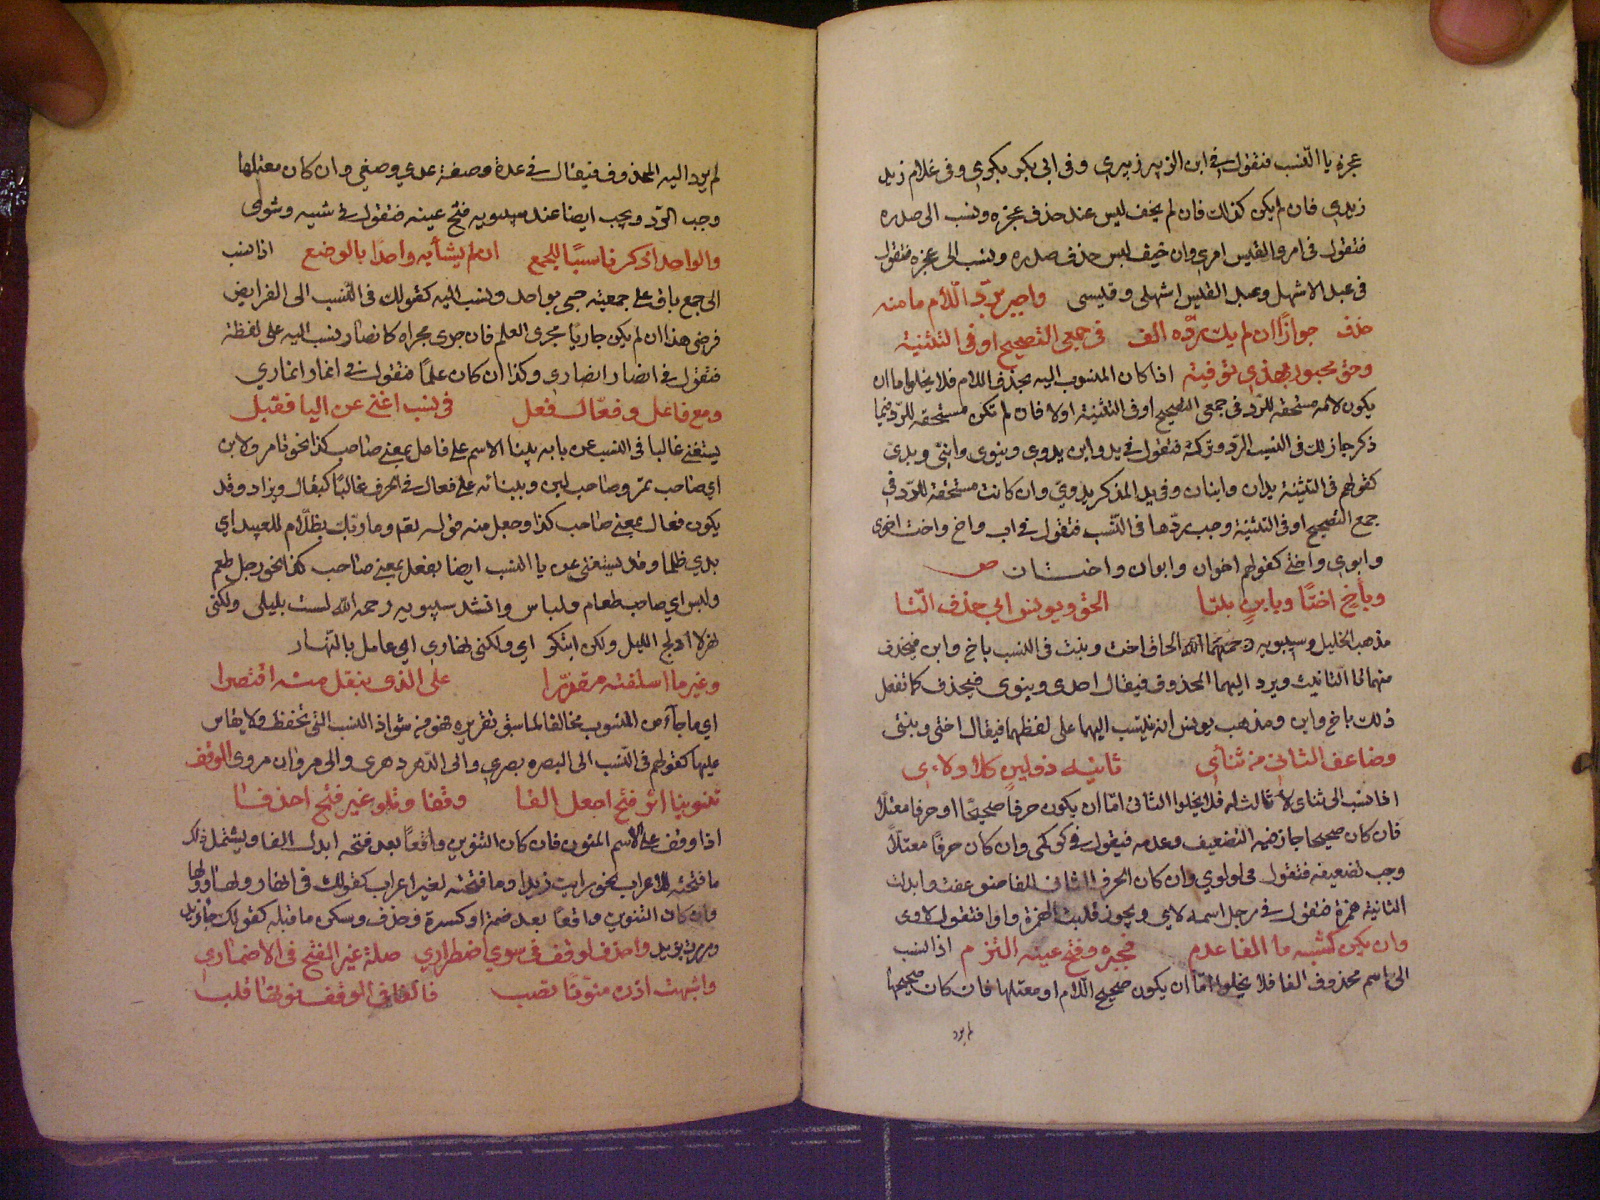 عجزه يا النسب فتقول في ابن الزبير زبيري وفي ابي بكر بكري وفي غلام زيد
زيدي فان لم يكن كذلك فان لم يخف لبس عند حذف عجزه ونسب الى صدره
فتقول في امرئ القيس امرئي وان خيف لبس حذف صدره ونسب الى عجزه فتقول
في عبد الاشهل وعبد القيس اشهلي وقيسي واجبر برد اللام ما منه
حذف جوازًا ان لم يك رده الف في جمعي التصحيح او في التثنية
وحق مجبور بهذي توفيه اذا كان المنسوب اليه محذوف اللام فلا يخلوا ما ان
يكون لامه مستحقه للرد في جمعي التصحيح او في التثنية اولا فان لم تكن مستحقه للرد فيما
ذكر جاز لك في النسب الرد وتركه فتقول في يد وابن يدوي وبنوي وابني ويدي
كقولهم في التثنية يدان وابنان وفي يد المذكر يدوي وان كانت مستحقة للرد في
جمع التصحيح او في التثنية وجب ردها في النسب فتقول في اب واخ واخت اخوي
وابوي واختي كقولهم اخوان وابوان واختان ص
وباخ اختًا وبابن بنتا الحق ويونس ابى حذف التا
مذهب الخليل وسيبويه رحمهما الله الحاق اخت وبنت في النسب باخ وابن فيحذف
منهما تا التانيث ويرد اليهما المحذوف فيقال اخوي وبنوي فيحذف كما تفعل
ذلك باخ وابن ومذهب يونس انه ينسب اليهما على لفظهما فيقال اختي وبنتي
وضاعف الثاني من ثنائي ثانيه ذو لين كلا ولاءي
اذا نسب الى ثنائي لا ثالث له فلا يخلوا الثاني امّا ان يكون حرفا صحيحًا او حرفا معتلًا
فان كان صحيحا جاز فيه التضعيف وعدمه فيقول في كم كمي وان كان حرفًا معتلًا
وجب تضعيفه فتقول في لو لوي وان كان الحرف الثاني الفا ضوعفت وابدلت
الثانية همزة فتقول في رجل اسمه لا لاي ويجوز قلب الهمزة واوا فتقول لاوي
وان يكن كشيه ما الفا عدم فجبره وفتح عينه التزم اذا نسب
الى اسم محذوف الفا فلا يخلوا امّا ان يكون صحيح اللام او معتلها فان كان صحيحها
لم يرد
لم يرد اليه المحذوف فيقال في عدة وصفة عدي وصفي وان كان معتلها
وجب الرد ويجب ايضا عند سيبويه فتح عينه فتقول في شيه وشوي
والواحد اذكر ناسبًا للجمع ان لم يشابه واحدًا بالوضع اذا نسب
الى جمع باق على جمعيته جي بواحد ونسب اليه كقولك في النسب الى الفرايض
فرضي هذا ان لم يكن جاريًا مجرى العلم فان جرى مجراه كانصار ينسب اليه على لفظه
فتقول في انصار انصاري وكذا ان كان علمًا فتقول في انمار انماري
ومع فاعل وفعّال فعل في نسب اغنى عن اليا فقبل
يستغنى غالبا في النسب عن يا به ببنا الاسم على فاعل بمعنى صاحب كذا نحو تامر ولابن
اي صاحب تمر وصاحب لبن وببنائه على فعال في الحرف غالبًا كبقال وبزاد وقد
يكون فعال بمعنى صاحب كذا وجعل منه قوله تع وما ربك بظلّام للعبيد اي
بذي ظلم وقد يستغنى عن يا النسب ايضا بفعل بمعنى صاحب كذا نحو رجل طعم
ولبس اي صاحب طعام ولباس وانشد سيبويه رحمه الله لست بليلي ولكني
نهر لا ادلج الليل ولكن ابتكر اي ولكني نهاري اي عامل بالنّهار
وغير ما اسلفته مقررًا على الذي ينقل منه اقتصرا
اي ما جآء من المنسوب مخالفا لما سبق تقريره فهو من شواذ النسب التي تحفظ ولا يقاس
عليها كقولهم في النّسب الى البصره بصري والى الدّهر دهري والى مروان مروي الوقف
تنوينا اثر فتح اجعل الفا وقفا وتلو غير فتح احذفا
اذا وقف على الاسم المنون فان كان التنوين واقعًا بعد فتحه ابدل الفا ويشمل ذلك
ما فتحته للاعراب نحو رايت زيدا وما فتحته لغير اعراب كقولك في ايها وويها ايها وويها
وان كان التنوين واقعا بعد ضمة او كسرة وحذف وسكن ما قبله كقولك جا زيد
ومررت بزيد واحذف لوقف في سوي اضطراري صلة غير الفتح في الاضماري
واشبهت اذن منونًا نصب فالفا في الوقف نونها قلب